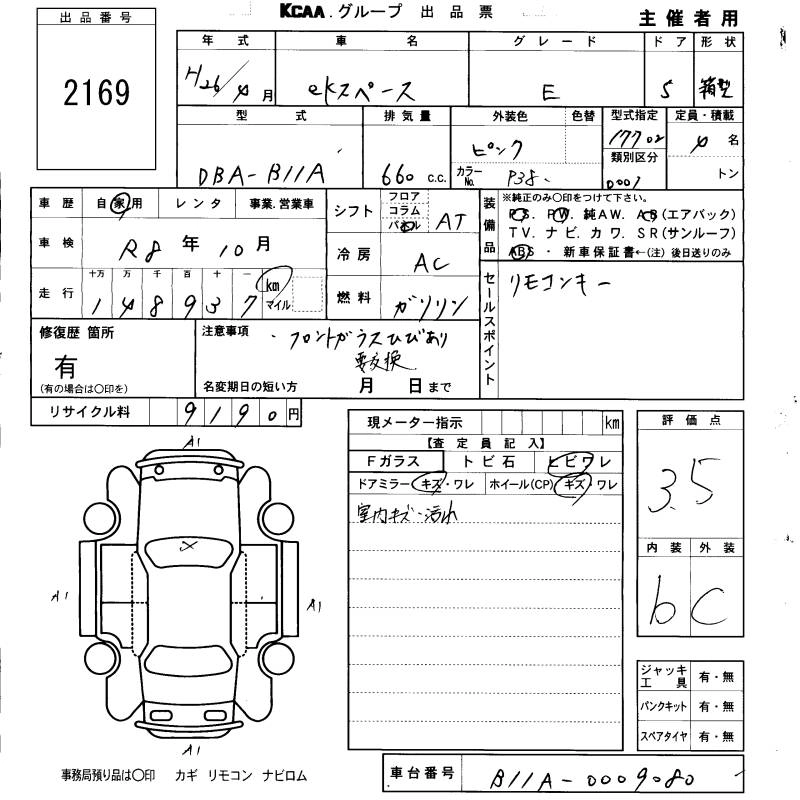 出品番号
2169
KCAA.グループ 出品票
主催者用
年式 車名 グレード ドア 形状
H26/4月 ekスペース E 5 箱型
型式 排気量 外装色 色替 型式指定 定員・積載
DBA-B11A 660 c.c. ピンク 17702 4名
カラーNo. P38 類別区分 0007 トン
車歴 自家用 レンタ 事業.営業車
シフト フロア コラム パネル AT
車検 R8年10月
冷房 AC
走行 十万 万 千 百 十 一
148937 km マイル
燃料 ガソリン
装備品 ※純正のみ〇印をつけて下さい。
PS. PW. 純AW. AB(エアバック)
TV. ナビ. カワ. SR(サンルーフ)
ABS・新車保証書←(注)後日送りのみ
セールスポイント リモコンキー
修復歴 箇所
有
(有の場合は〇印を)
注意事項 ・フロントガラスひびあり
要交換
名変期日の短い方 月 日まで
リサイクル料 9190円
現メーター指示 km
【査定員記入】
Fガラス トビ石 ヒビワレ
ドアミラー キズ・ワレ ホイール(CP) キズ・ワレ
室内キズ・汚れ
評価点
3.5
内装 外装
b C
A1
X
A1 A1
A1
ジャッキ工具 有・無
パンクキット 有・無
スペアタイヤ 有・無
事務局預り品は〇印 カギ リモコン ナビロム
車台番号 B11A-0009080